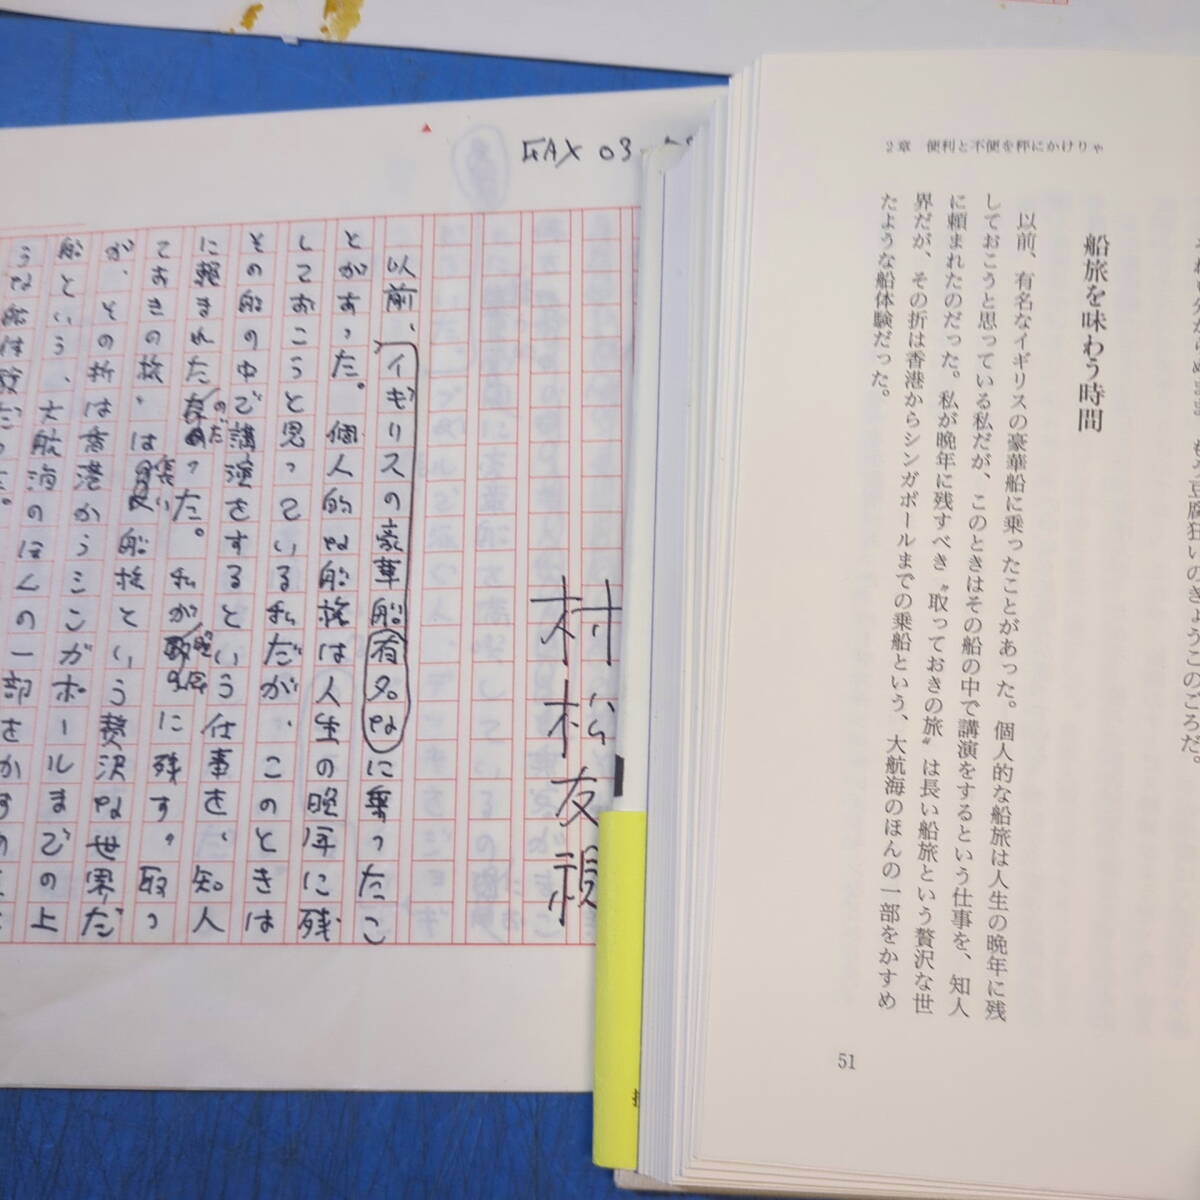 2章　便利と不便を秤にかけりゃ
もう豆腐狂いのきょうこのごろだ。
船旅を味わう時間
以前、有名なイギリスの豪華船に乗ったことがあった。個人的な船旅は人生の晩年に残
しておこうと思っている私だが、このときはその船の中で講演をするという仕事を、知人
に頼まれたのだった。私が晩年に残すべき〝取っておきの旅〟は長い船旅という贅沢な世
界だが、その折は香港からシンガポールまでの乗船という、大航海のほんの一部をかすめ
たような船体験だった。
51
FAX 03
村松友視
以前、イギリスの豪華船有名なに乗ったこ
とがあった。個人的な船旅は人生の晩年に残
しておこうと思っている私だが、このときは
その船の中で講演をするという仕事を、知人
に頼まれたのだった。私が晩年に残す〝取っ
ておきの旅〟は長い船旅という贅沢な世界だ
が、その折は香港からシンガポールまでの上
船という、大航海のほんの一部をかすめ
うな船体験だった。